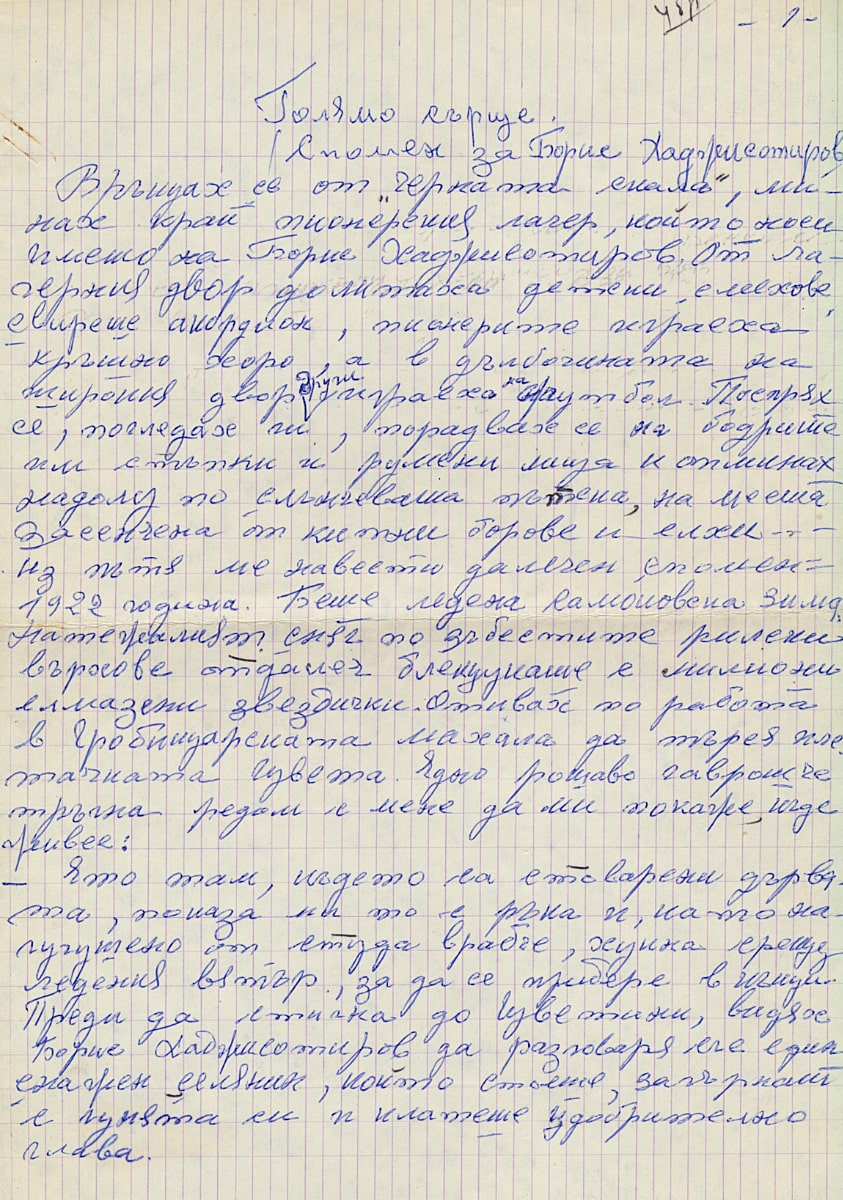 - 1 -
Голямо сърце.
/Спомен за Борис Хаджисотиров
Връщах се от "Черната скала", ми-
нах край пионерския лагер, който носи
името на Борис Хаджисотиров. От ла-
герния двор долитаха детски смехове,
свиреше акордион, пионерите играеха
кръшно хоро, а в дълбочината на
широкия двор други играеха на футбол. Поспрях
се, погледах ги, порадвах се на бодрите
им стъпки и румени лица и отминах
надолу по слънчевата пътека, на места
засенчена от китни борове и елхи ---
Из пътя ме навести далечен спомен =
1922 година. Беше ледена самоковска зима.
Натегналият сняг по зъбестите рилски
върхове отдалеч блещукаше с милиони
елмазени звездички. Отивах по работа
в Гробницарската махала да търся пле-
тачката Цвета. Едно рошаво гаврошче
тръгна редом с мене да ми покаже, где
живее:
- Ято там, където са стоварени дърва-
та, показа ми то с ръка и, като на-
гугушено от студа врабче, хукна срещу
ледения вятър, за да се прибере в къщи.
Преди да стигна до Цветини, видях
Борис Хаджисотиров да разговаря със един
снажен селянин, който стоеше, загърнат
с гунята си и клатеше удобрително
глава.